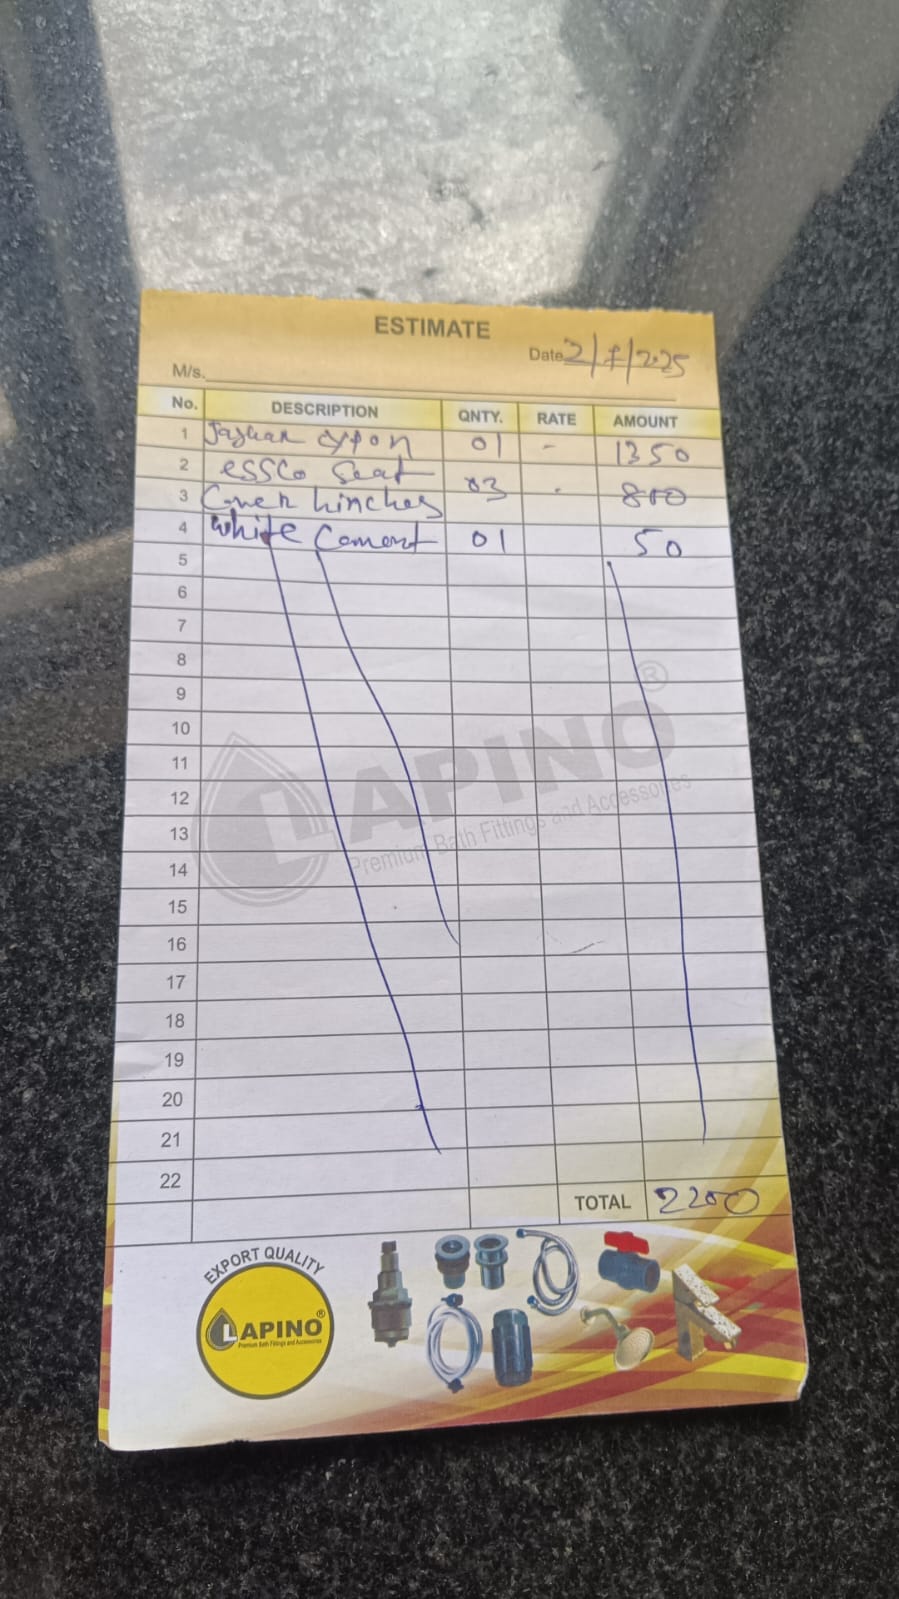 ESTIMATE
Date 2/7/2025
M/s.
No. DESCRIPTION QNTY. RATE AMOUNT
1 Jaquar cypon 01 - 1350
2 ESSCO Seat
3 Cover hinches 03 - 800
4 White Cement 01 50
5
6
7
8
9
10
11
12
13
14
15
16
17
18
19
20
21
22
TOTAL 2200
LAPINO®
Premium Bath Fittings and Accessories
EXPORT QUALITY
LAPINO®
Premium Bath Fittings and Accessories